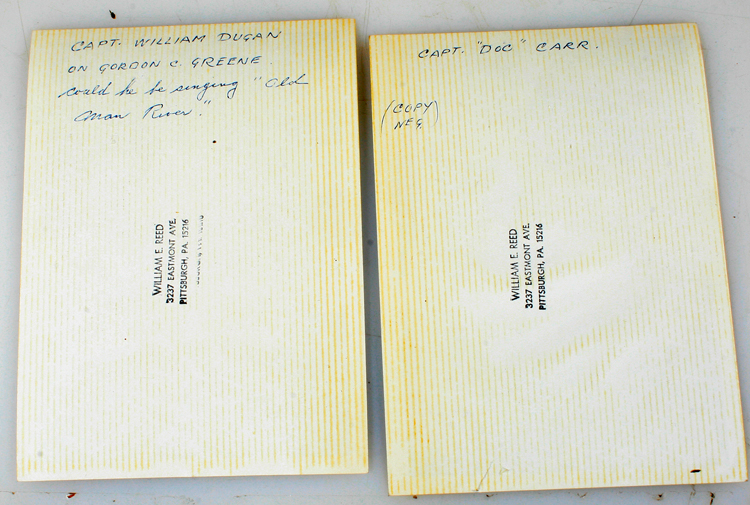 CAPT. WILLIAM DUGAN
ON GORDON C. GREENE.
could he be singing "Old
Man River."
WILLIAM E. REED
3237 EASTMONT AVE.
PITTSBURGH, PA. 15216
CAPT. "DOC" CARR.
(COPY
NEG.)
WILLIAM E. REED
3237 EASTMONT AVE.
PITTSBURGH, PA. 15216